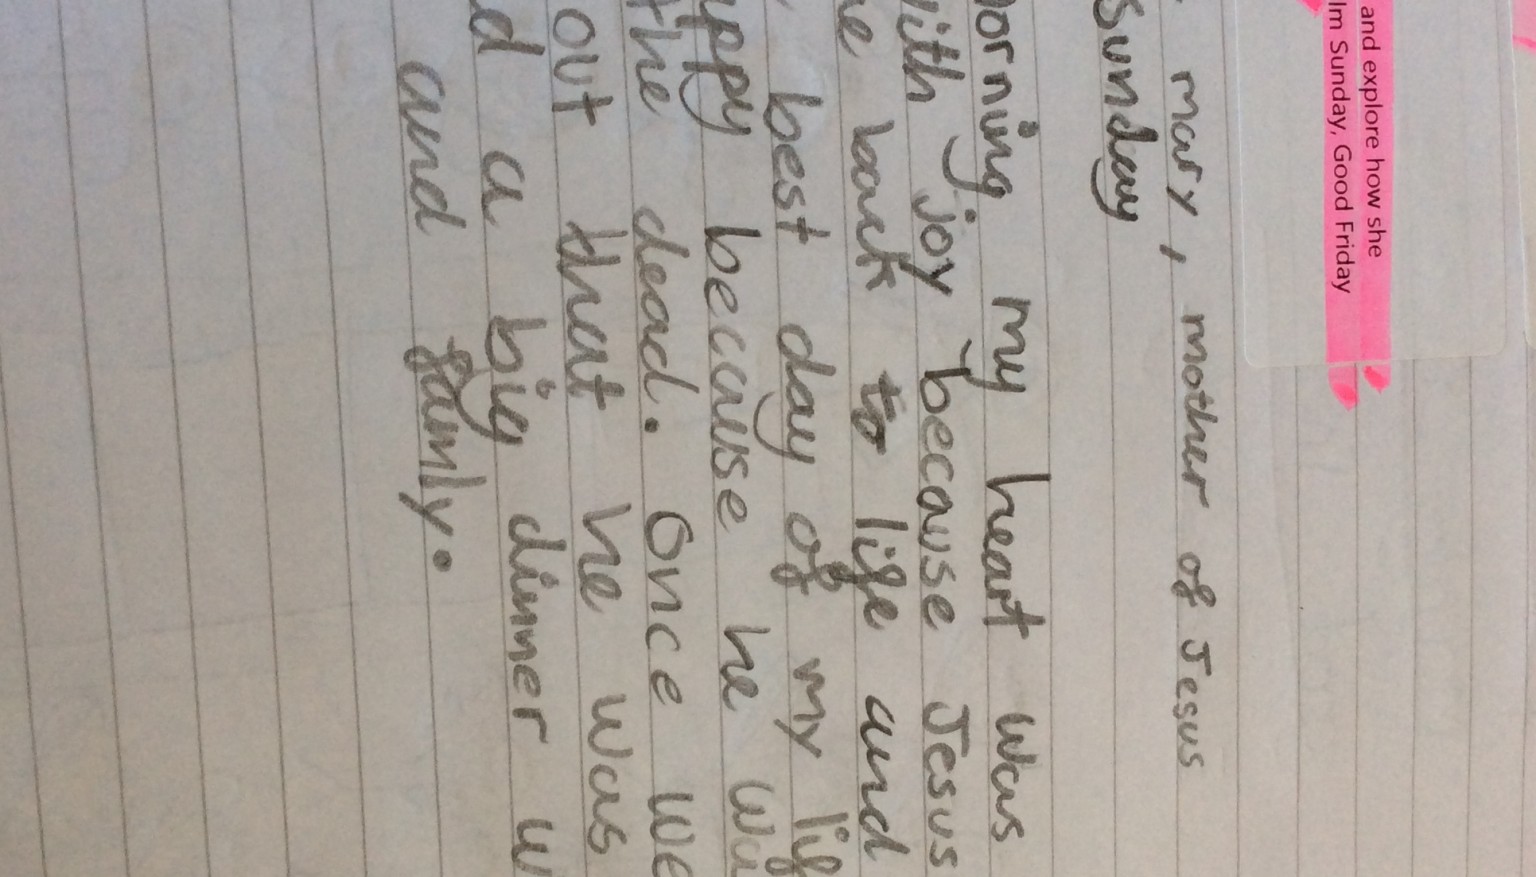 and explore how she
lm Sunday, Good Friday
mary, mother of Jesus
Sunday
orning my heart was
ith joy because Jesus
e back to life and
best day of my lif
ppy because he wa
the dead. Once we
out that he was
d a big dinner w
and family.